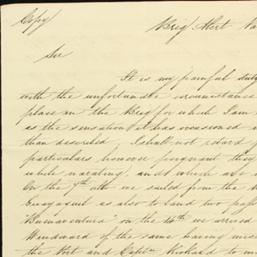 Copy
Brig Alert
Sir
It is my painful duty
with the unfortunate circumstance
place in the Brig for which I am
as the sensation it has occasioned
than described, I shall not retard
particulars however poignant they
while narating, and at which
On the 7th ulto we sailed from the
Guayaquil as also to land two
"Buenaventura" on the 14th we arrived
Windward of the same having
the Port and Captn Richard to